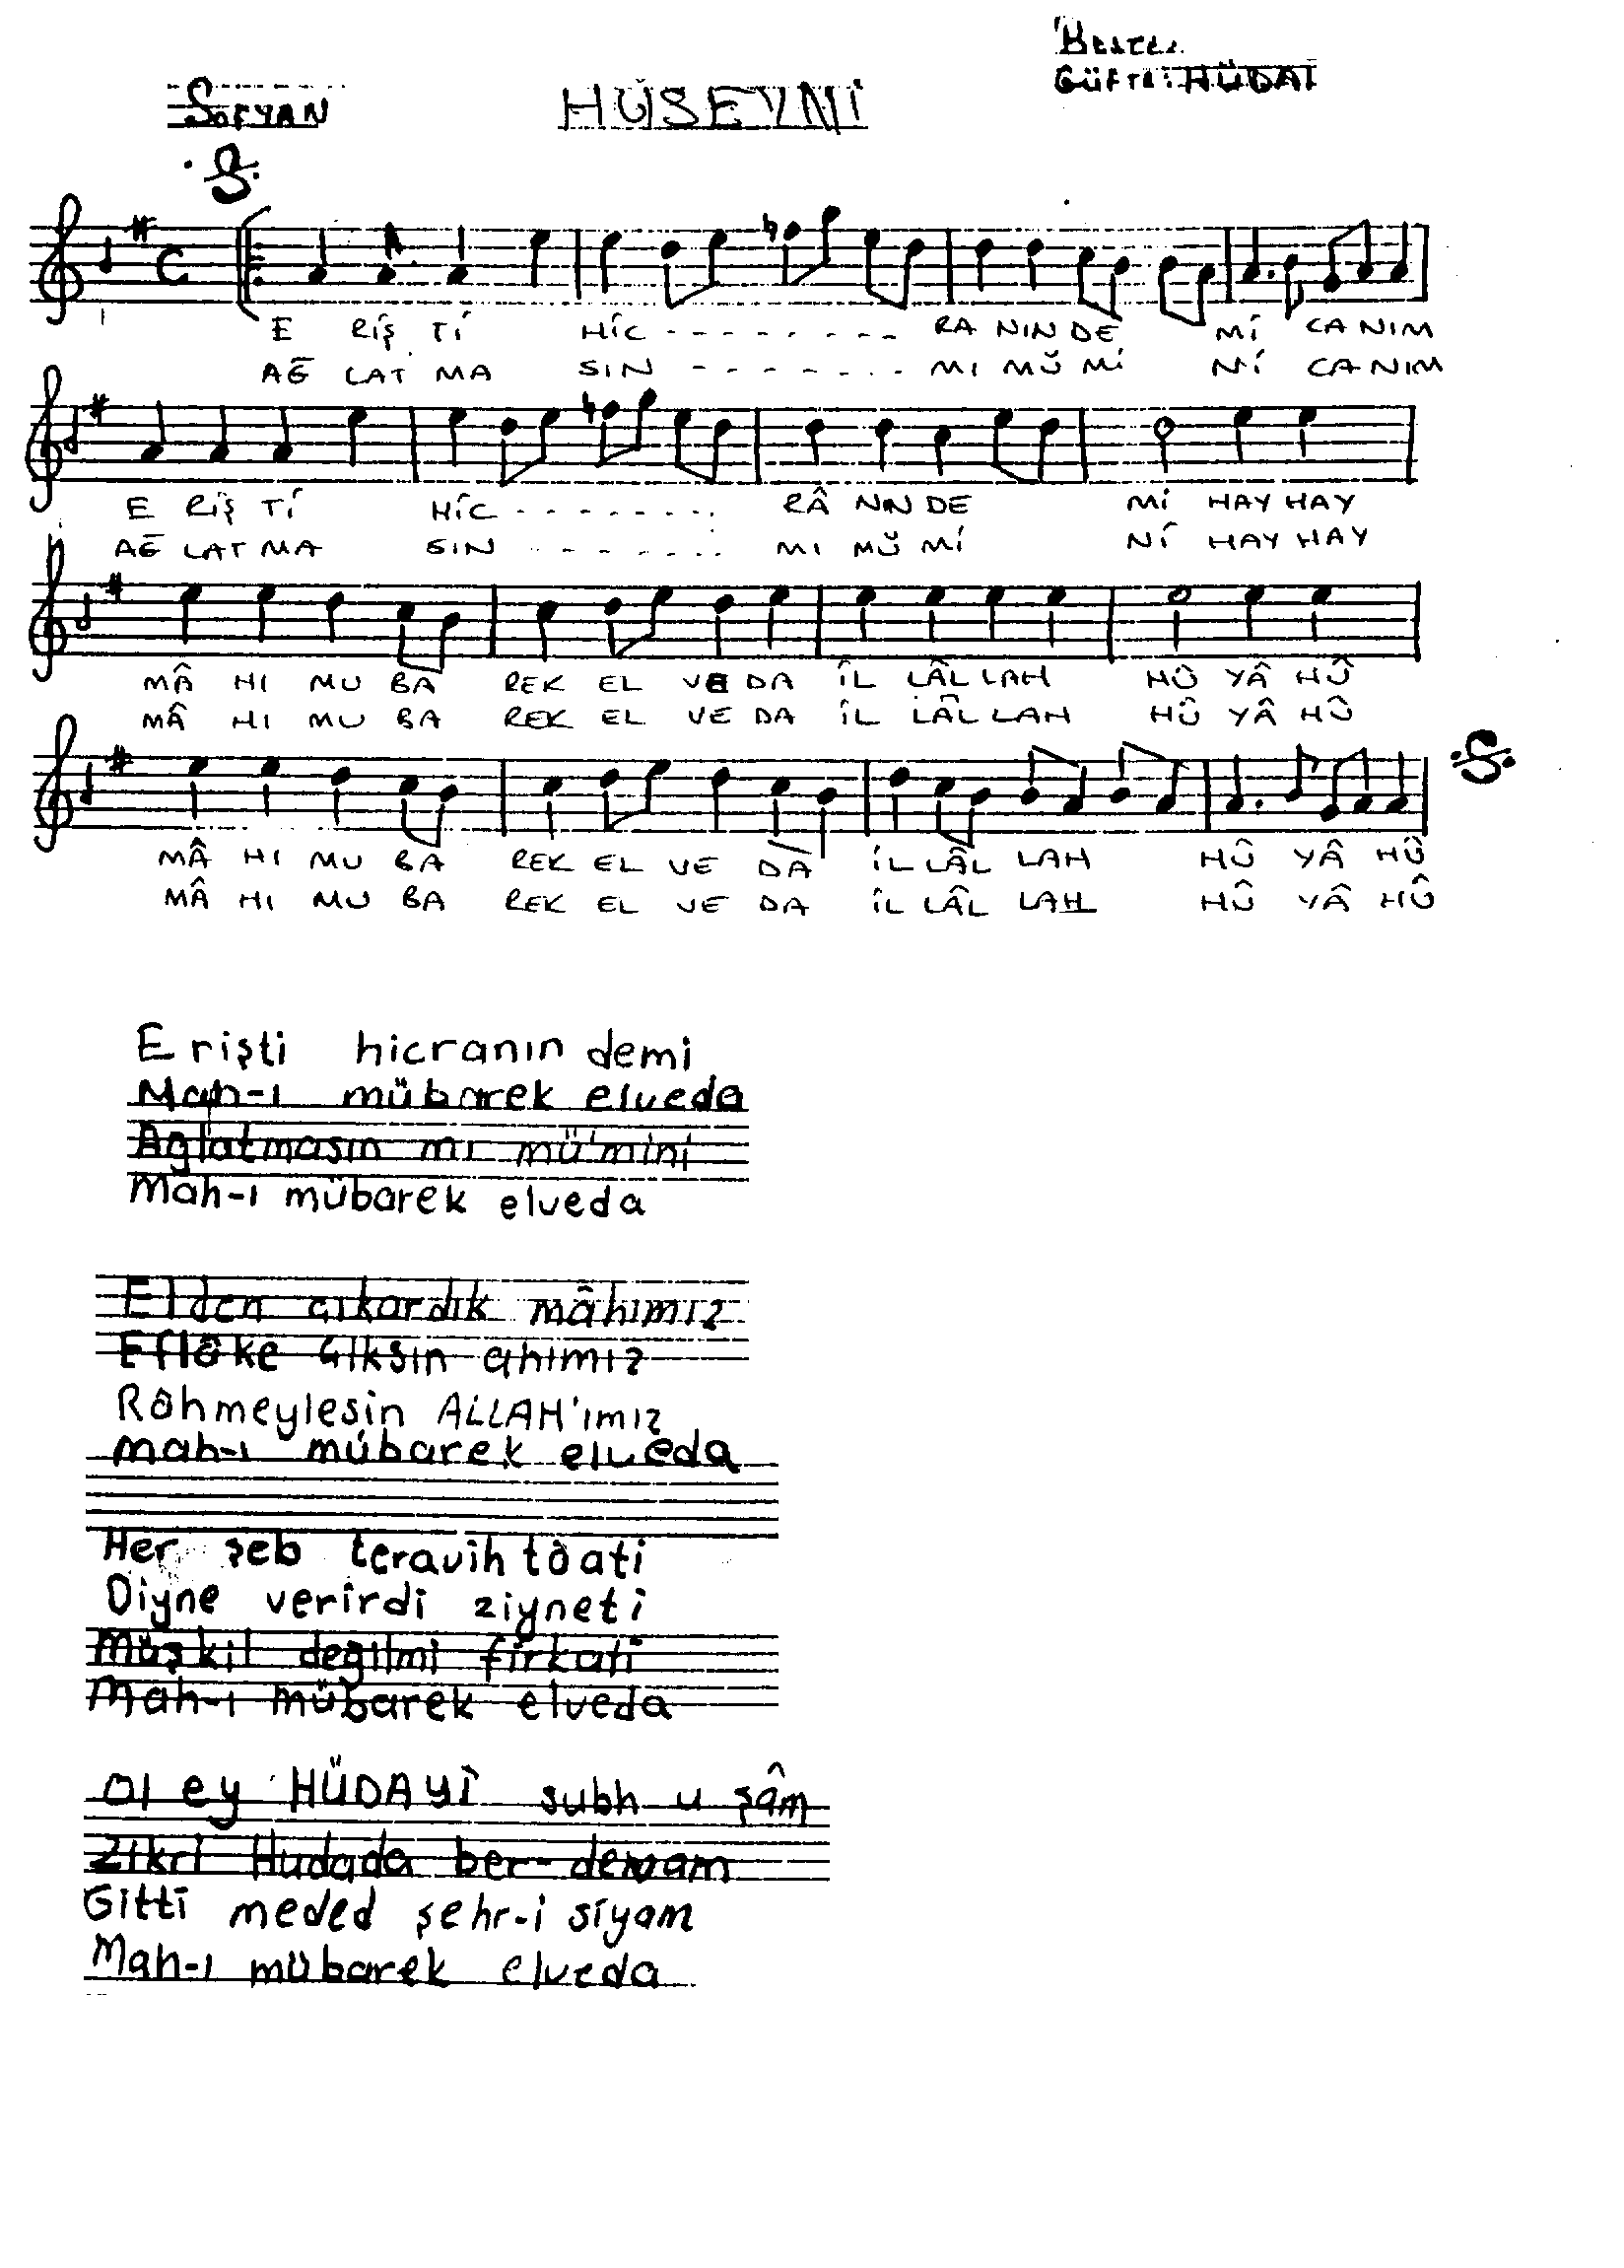 Beste:
Güfte: HÜDAİ
SOFYAN
HÜSEYNİ
E RİŞ Tİ HİC - - - - - - - - RA NIN DE Mİ CA NIM
AĞ LAT MA SIN - - - - - - - MI MÜ Mİ Nİ CA NIM
E RİŞ Tİ HİC - - - - - - - RÂ NIN DE Mİ HAY HAY
AĞ LAT MA SIN - - - - - - MI MÜ Mİ Nİ HAY HAY
MÂ HI MU BA REK EL VE DA İL LÂL LAH HÛ YÂ HÛ
MÂ HI MU BA REK EL VE DA İL LÂL LAH HÛ YÂ HÛ
MÂ HI MU BA REK EL VE DA İL LÂL LAH HÛ YÂ HÛ
MÂ HI MU BA REK EL VE DA İL LÂL LAH HÛ YÂ HÛ
Erişti hicranın demi
Mah-ı mübarek elveda
Ağlatmasın mı mü'mini
Mah-ı mübarek elveda
Elden çıkardık mâhımız
Eflâke çıksın ahımız
Râhmeylesin ALLAH'ımız
mah-ı mübarek elveda
Her şeb teravih tâati
Diyne verirdi ziyneti
Müşkil değilmi firkati
Mah-ı mübarek elveda
Ol ey HÜDAYÎ subh u şâm
Zikri Hudada ber-devam
Gitti meded şehr-i siyam
Mah-ı mübarek elveda